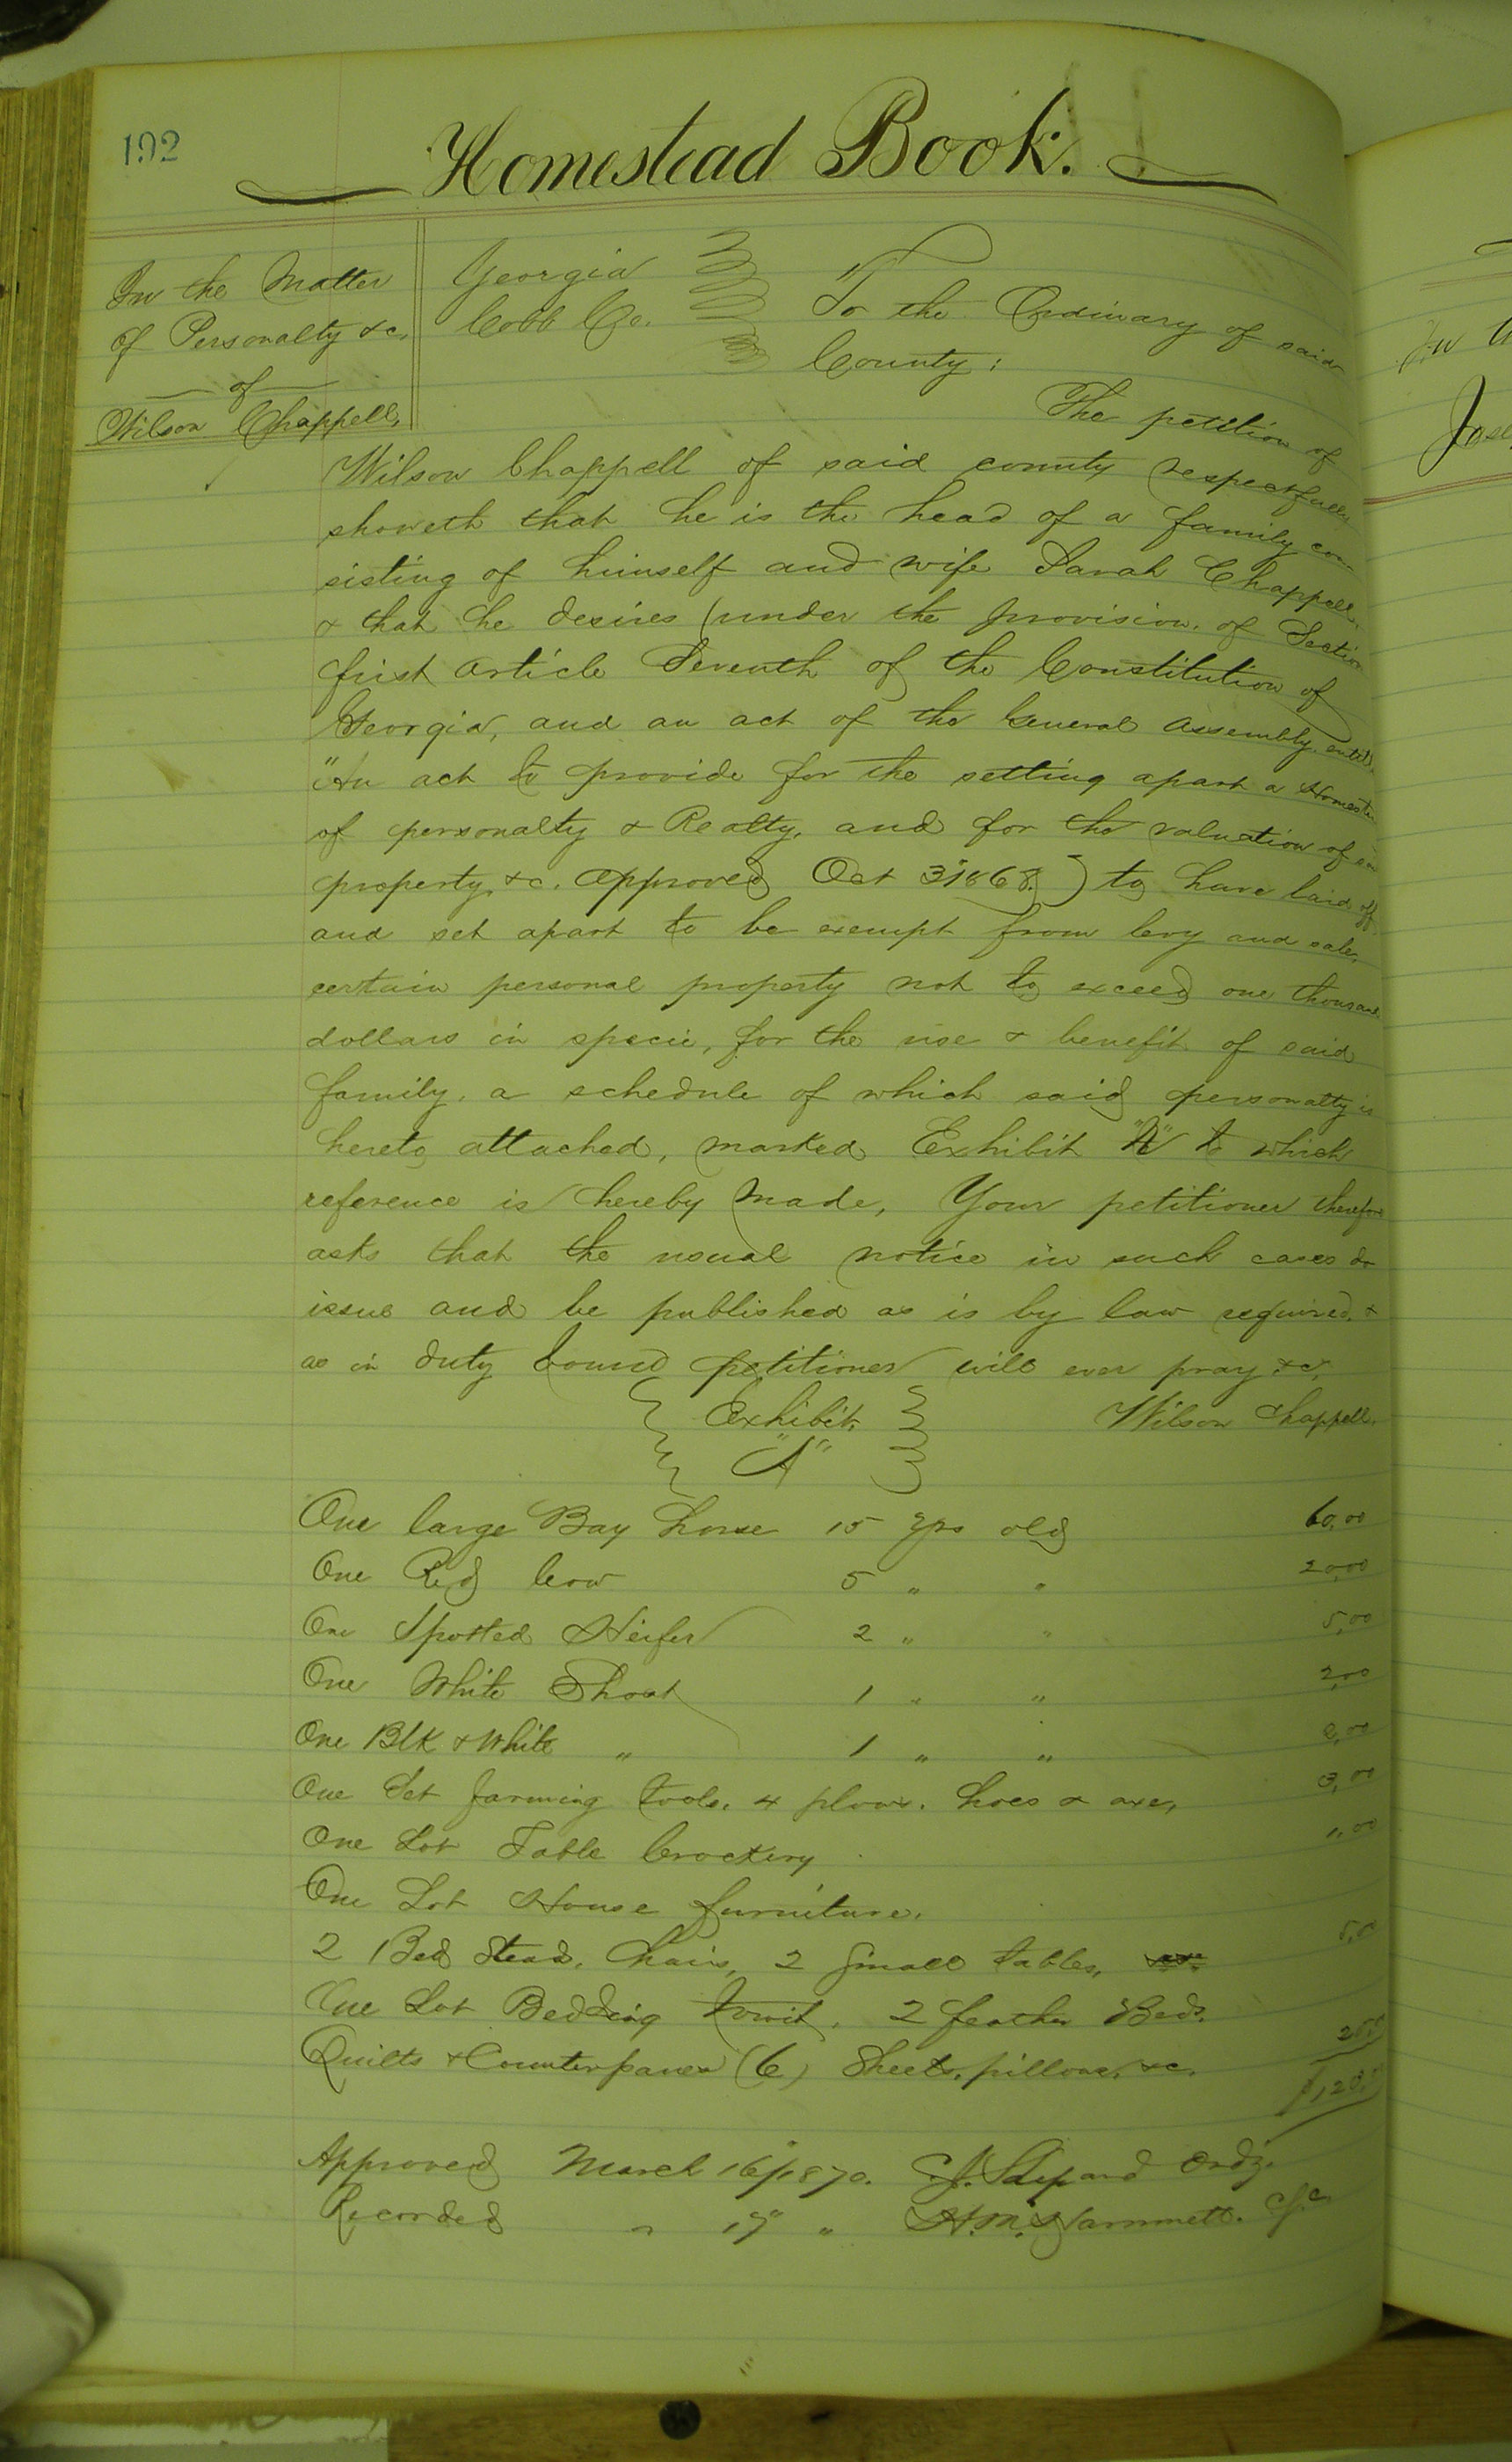 192
Homestead Book.
In the Matter
of Personalty &c,
of
Wilson Chappell,
Georgia
Cobb Co.
To the Ordinary of said
County:
The petition of
Wilson Chappell of said county respectfully
showeth that he is the head of a family con-
sisting of himself and wife Sarah Chappell,
& that he desires (under the provision, of Section
first article Seventh of the Constitution of
Georgia, and an act of the General Assembly,
"An act to provide for the setting apart a
of personalty & Realty, and for the valuation of
property, &c. approved Oct 3" 1868.) to have laid off
and set apart to be exempt from levy and sale,
certain personal property not to exceed one thousand
dollars in specie, for the use & benefit of said
family, a schedule of which said personalty is
hereto attached, marked Exhibit "A" to which
reference is hereby made, Your petitioner therefore
asks that the usual notice in such cases do
issue and be published as is by law required, &
as in duty bound petitioner will ever pray &c,
Exhibit, Wilson Chappell.
"A"
One large Bay horse 15 yrs old 60,00
One Red Cow 5 " " 20,00
One Spotted Heifer 2 " " 5,00
One White Shoat 1 " " 2,00
One Blk & White " 1 " " 2,00
One Set farming tools, 4 plows, hoes & axe, 3,00
One Lot Table Crockery 1,00
One Lot House furniture,
2 Bed Stead, Chairs, 2 Small tables,
One Lot Bedding towit, 2 feather Beds,
Quilts & Counterpanes (6) Sheets, pillows, &c.
Approved March 16" 1870. Ordy.
Recorded " 17" " H. M. Hammett.
Jose